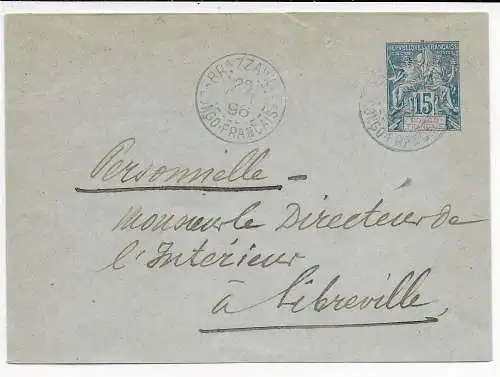 BRAZZAVILLE
96
CONGO-FRANÇAIS
REPUBLIQUE FRANÇAISE
15
CONGO
FRANÇAIS
CONGO-FRANÇAIS
Personnelle -
Monsieur le Directeur de
l'Intérieur
à Libreville,